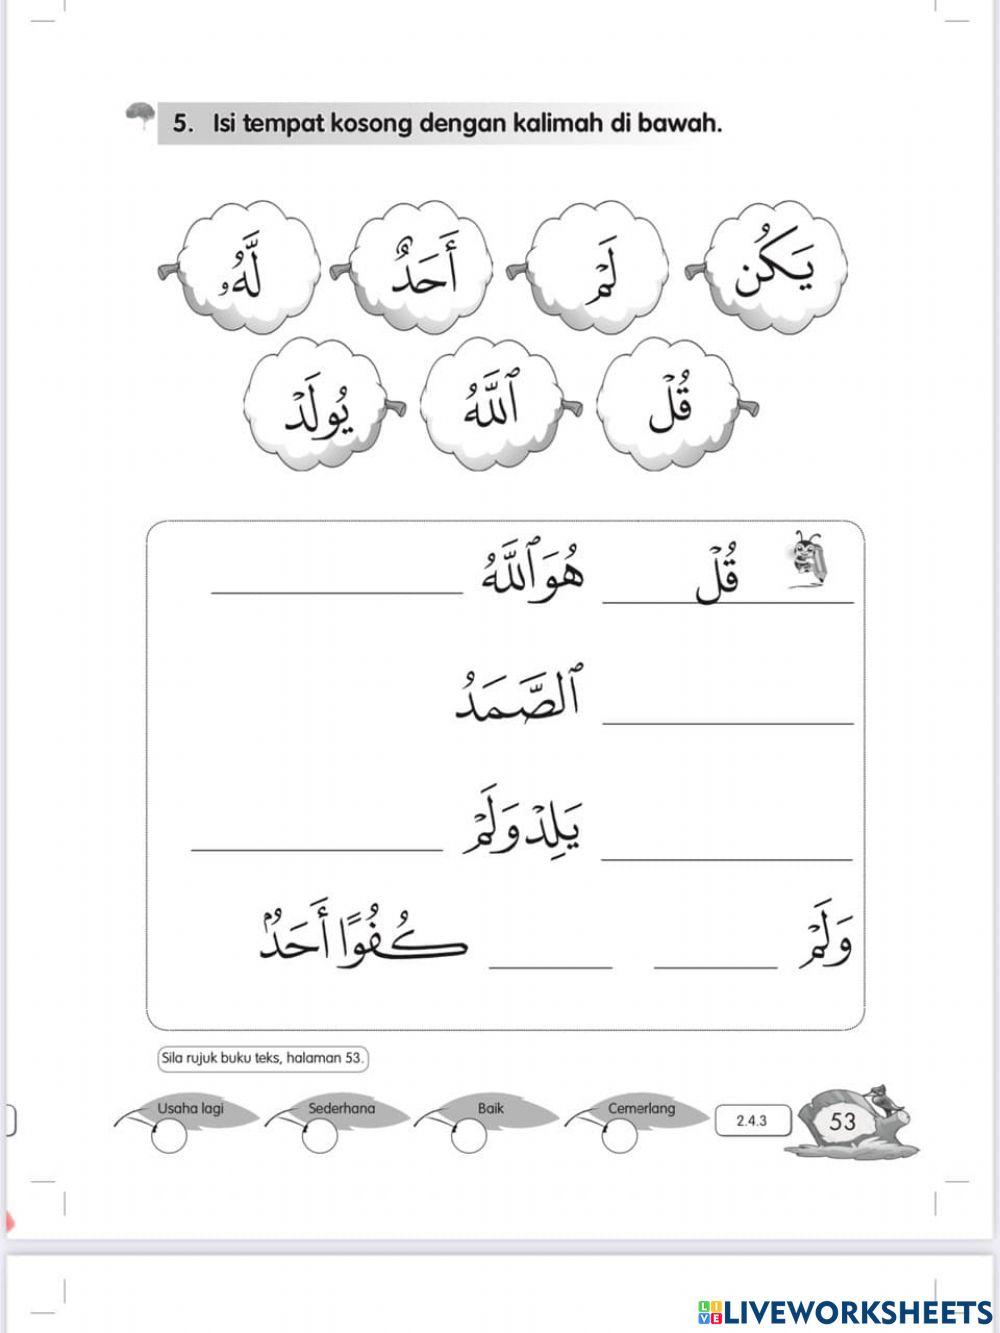 5. Isi tempat kosong dengan kalimah di bawah.
يَكُن لَمۡ أَحَدٌ لَّهُۥ
قُلۡ ٱللَّهُ يُولَدۡ
قُلۡ هُوَ ٱللَّهُ
ٱلصَّمَدُ
يَلِدۡ وَلَمۡ
وَلَمۡ كُفُوًا أَحَدُۢ
Sila rujuk buku teks, halaman 53.
Usaha lagi Sederhana Baik Cemerlang 2.4.3 53
LIVE LIVEWORKSHEETS